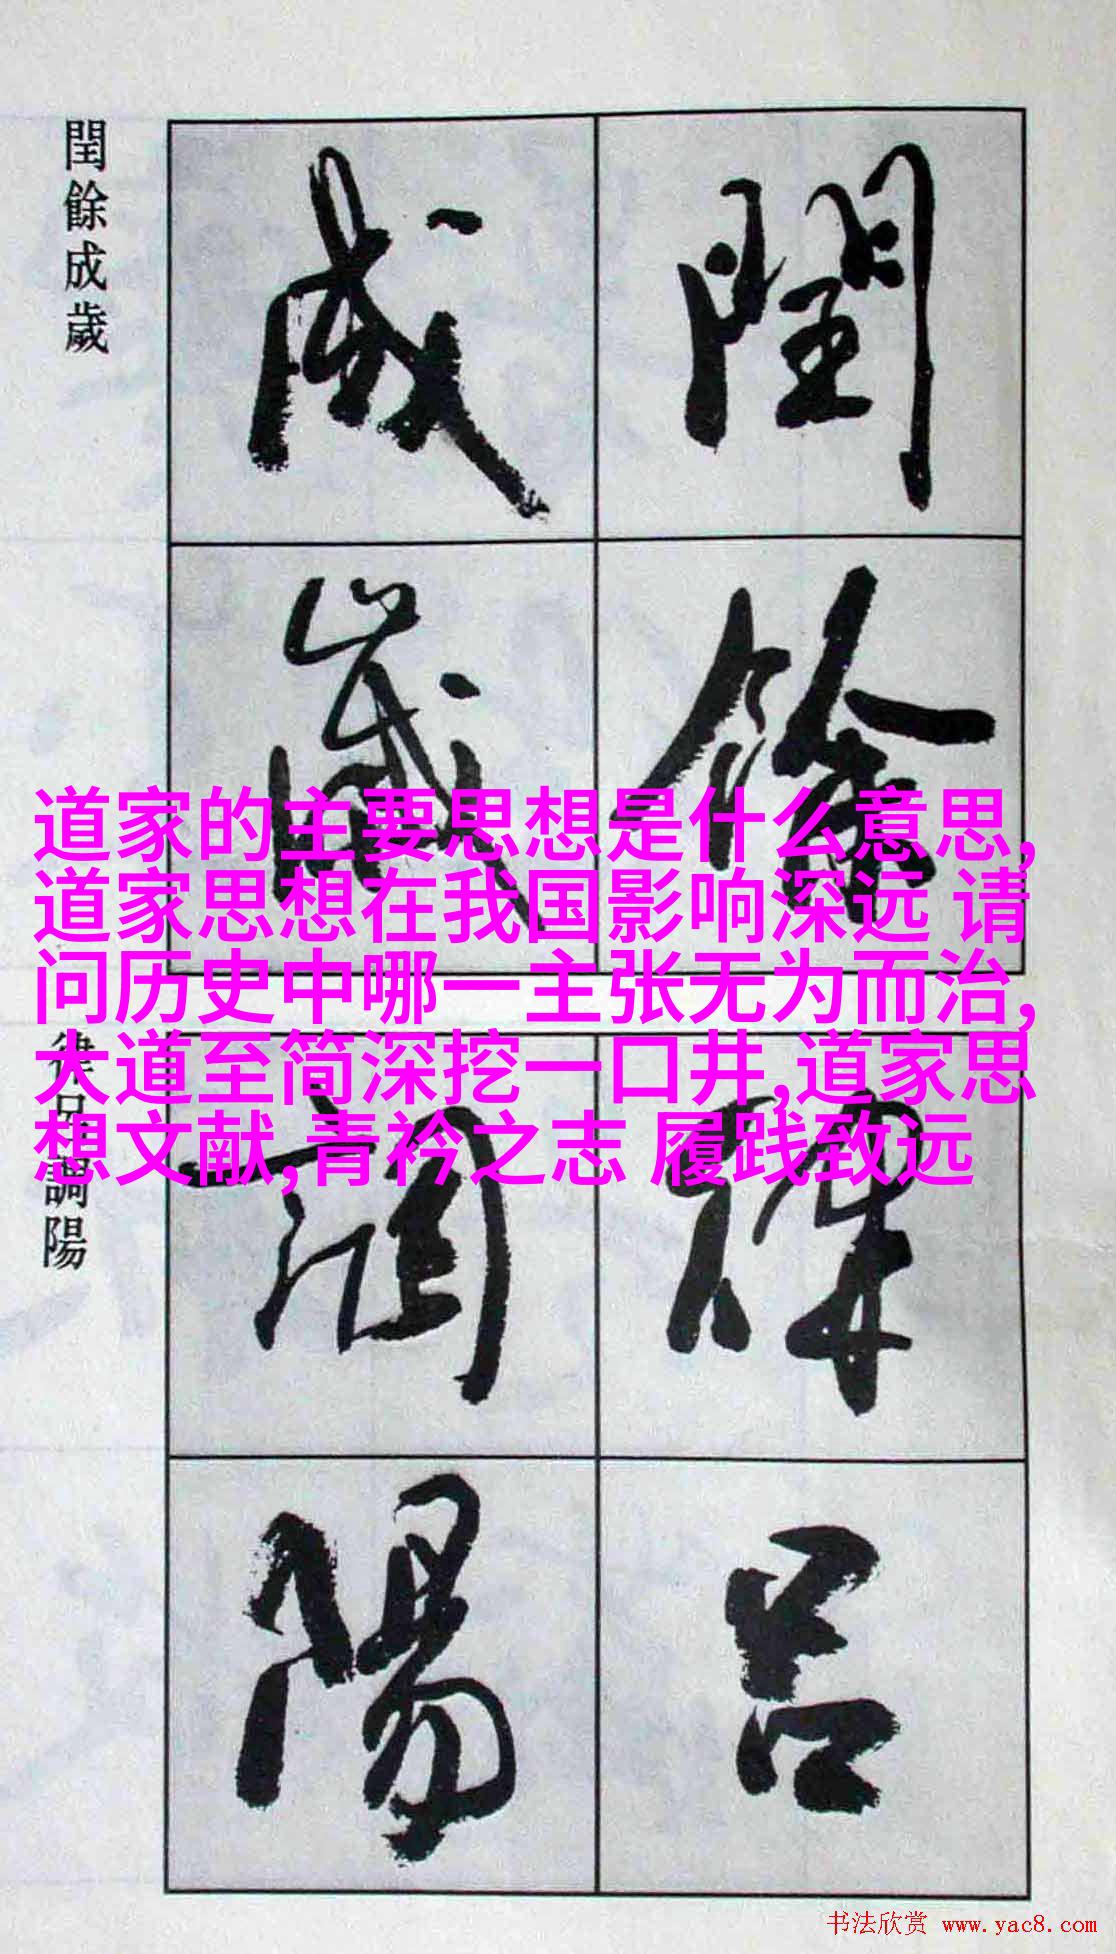 閏餘成歲
閏餘
成歲
道家的主要思想是什么意思,
道家思想在我国影响深远 请
问历史中哪一主张无为而治,
大道至简深挖一口井,道家思
想文献,青衿之志 履践致远
律呂調陽
律呂
調陽
书法欣赏 www.yac8.com